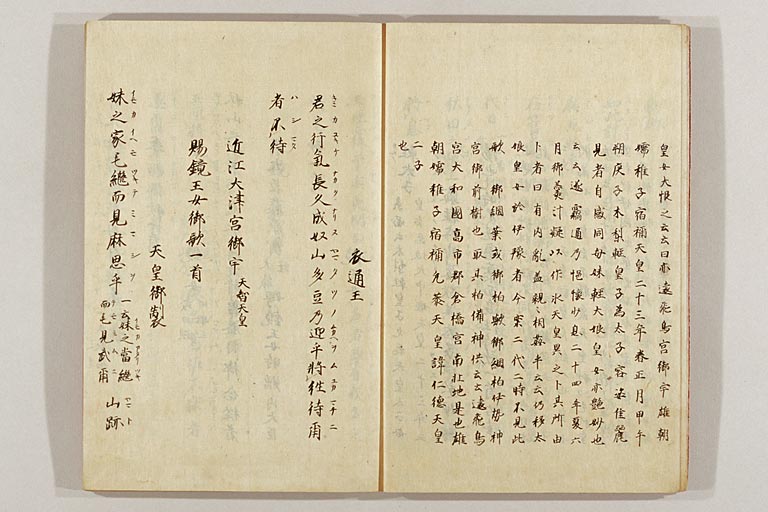 皇女大恨之云々曰亦遠飛鳥宮御宇雄朝
嬬稚子宿禰天皇二十三年春正月甲午
朔庚子木梨軽皇子為太子容姿佳麗
見者自感同母妹軽大娘皇女亦艶妙也
云々遂竊通乃悒懐少息二十四年夏六
月御羹汁凝以作氷天皇異之卜其所由
卜者曰有内乱盖親々相姧乎云々仍移太
娘皇女於伊豫者今案二代二時不見此
歌
御綱葉或御柏歟御綱柏伊勢神
宮御前樹也取其柏備神供云々遠飛鳥
宮大和國高市郡
宮南壮地是也雄
朝嬬稚子宿禰允恭天皇諱仁德天皇
二子
也
衣通王
君之行氣長久成奴山多豆乃迎乎将徃待尓
者不待
近江大津宮御宇 天智天皇
賜鏡王女御歌一首
天皇御製
妹之家毛継而見麻思乎 一云妹之當継而毛見武尓 山跡